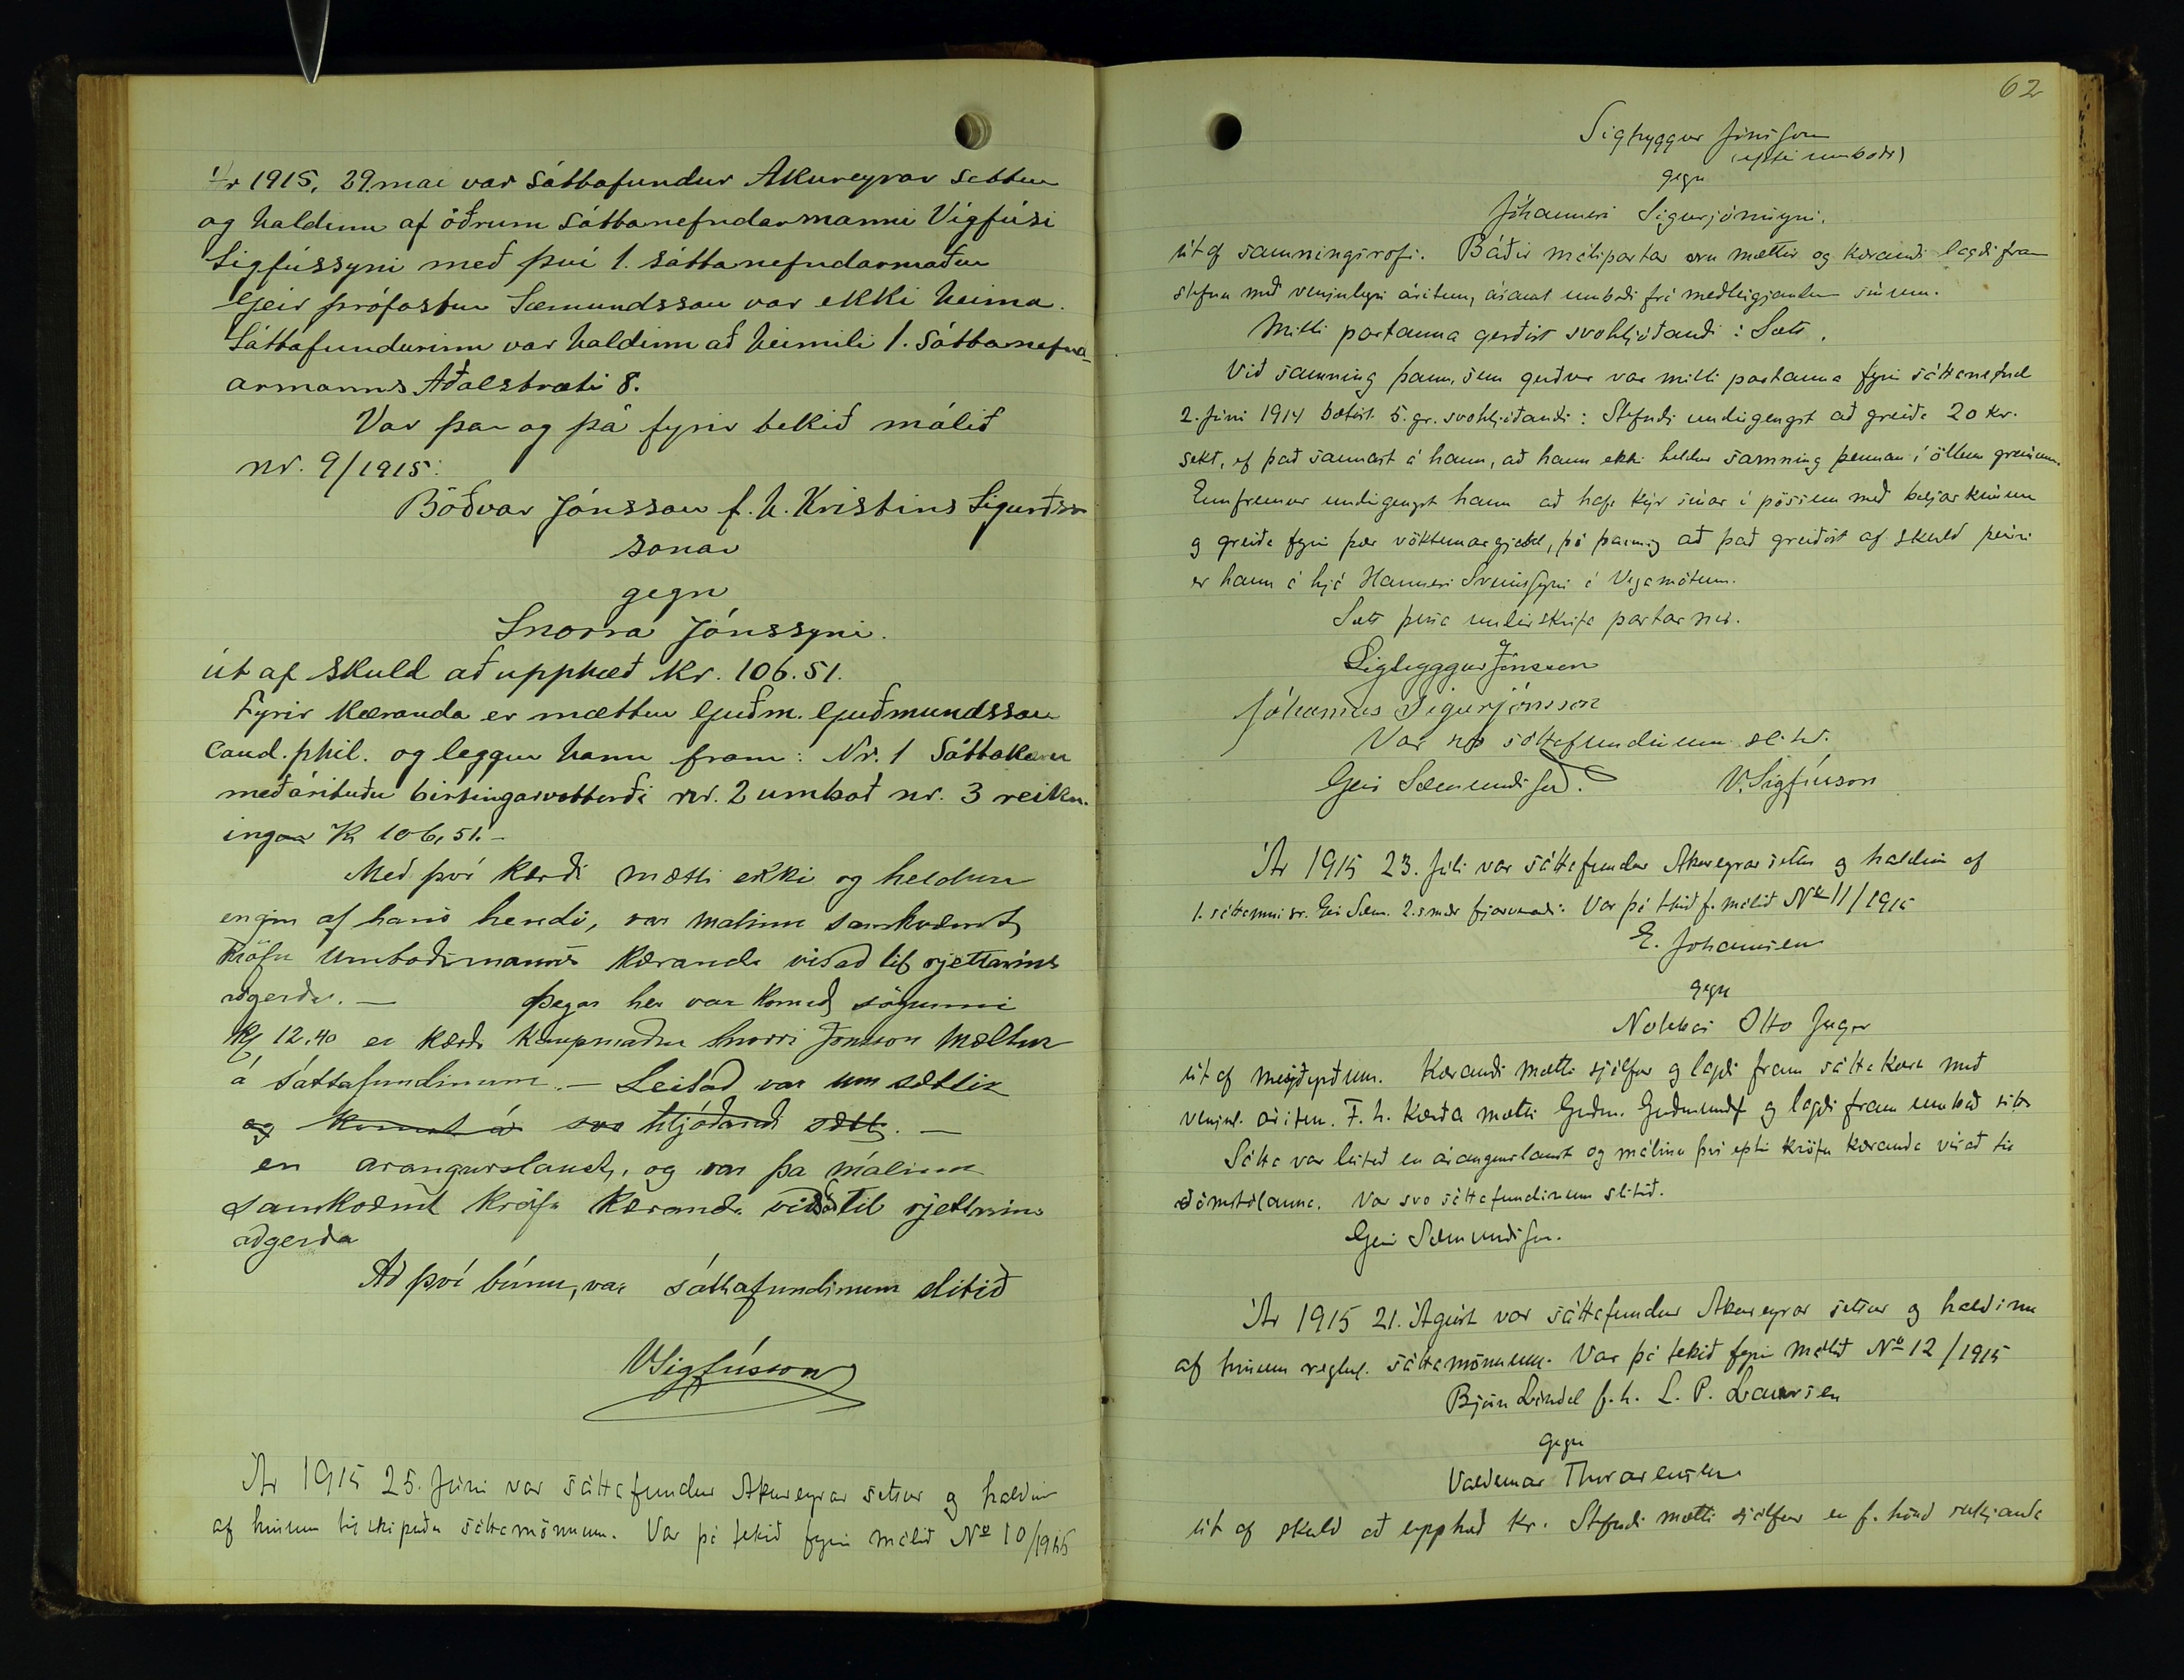 Ár 1915, 29. mai var sáttafundur Akureyrar settur
og haldinn af öðrum sáttanefndarmanni Vigfúsi
Sigfússyni með því 1. sáttanefndarmaður
Geir prófastur Sæmundsson var ekki heima.
Sáttafundurinn var haldinn að heimili 1. sáttanefnd-
armanns Aðalstræti 8.
Var þar og þá fyrir tekið málið
nr. 9/1915:
Böðvar Jónsson f. h. Kristins Sigurðs-
sonar
gegn
Snorra Jónssyni.
út af skuld að upphæð kr. 106.51.
Fyrir kæranda er mættur Guðm. Guðmundsson
cand. phil. og leggur hann fram: Nr. 1 Sáttakæru
með árituðu birtingarvottorði nr. 2 umboð nr. 3 reikn-
ingar Kr 106,51.-
Með því kærði mætti ekki og heldur
engin af hans hendi, var malinu samkvæmt
kröfu umboðsmanns kæranda vísað til rjettarins
aðgerða. — Þegar her var komið sögunni
Kl 12,40 er kærði kaupmaður Snorri Jónsson mættur
á sáttafundinum. — Leitað var um sættir
og komst á svo hljóðandi sætt. —
en arangurslaust, og var þa málinu
samkvæmt kröfu kæranda vísað til rjettarins
aðgerða
Að því búnu, var sáttafundinum slitið
VSigfússon
Ár 1915 25. Júni var sáttafundur Akureyrar settur og haldinn
af hinum tilskipuðu sáttamönnum. Var þá tekið fyrir málið No 10/1915
62
Sigtryggur Jónsson
(eptir umboði)
gegn
Jóhannesi Sigurjónssyni.
út af samningsrofi. Báðir málspartar eru mættir og kærandi lagði fram
stefnu með venjulegri áritun, ásamt umboði frá meðleigjanda sínum.
Milli partanna gerðist svohljóðandi: Sætt.
Við samning þann, sem gerður var milli partanna fyrir sáttanefnd
2. Júni 1914 bætist 5. gr. svohljóðandi: Stefndi undirgengst að greiða 20 kr.
sekt, ef það sannast á hann, að hann ekki heldur samning þennan í öllum greinum.
Ennfremur undirgengst hann að hafa kýr sínar í pössun með bæjarkúnum
og greiða fyrir þær vöktunargjald, þó þannig að það greiðist af skuld þeirri
er hann á hjá Hannesi Sveinssyni á Vegamótum.
Sætt þessa undirskrifa partarnir.
Sigtryggur Jónsson
Jóhannes Sigurjónsson
Var svo sáttafundinum slitið.
Geir Sæmundsson. V. Sigfússon
Ár 1915 23. Júli var sáttafundur Akureyrar settur og haldinn af
1. sáttanm. sr. Geir Sæm. 2. smðr fjarverandi. Var þá tekið f. málið No 11/1915
E. Johansen
gegn
Nokkvi Otto Jæger
út af meiðyrðum. Kærandi mætti sjálfur og lagði fram sáttakæru með
venjul. áritun. F. h. kærða mætti Guðm. Guðmunds og lagði fram umboð sitt
Sátta var leitað en árangurslaust og málinu því eptir kröfu kæranda vísað til
dómstólanna. Var svo sáttafundinum slitið.
Geir Sæmundsson.
Ár 1915 21. Ágúst var sáttafundur Akureyrar settur og haldinn
af hinum reglul. sáttamönnum. Var þá tekið fyrir málið No 12/1915
Björn Líndal f. h. L. P. Laursen
Gegn
Valdemar Thorarensen
út af skuld að upphæð kr. Stefndi mætti sjálfur en f. hönd sækjanda